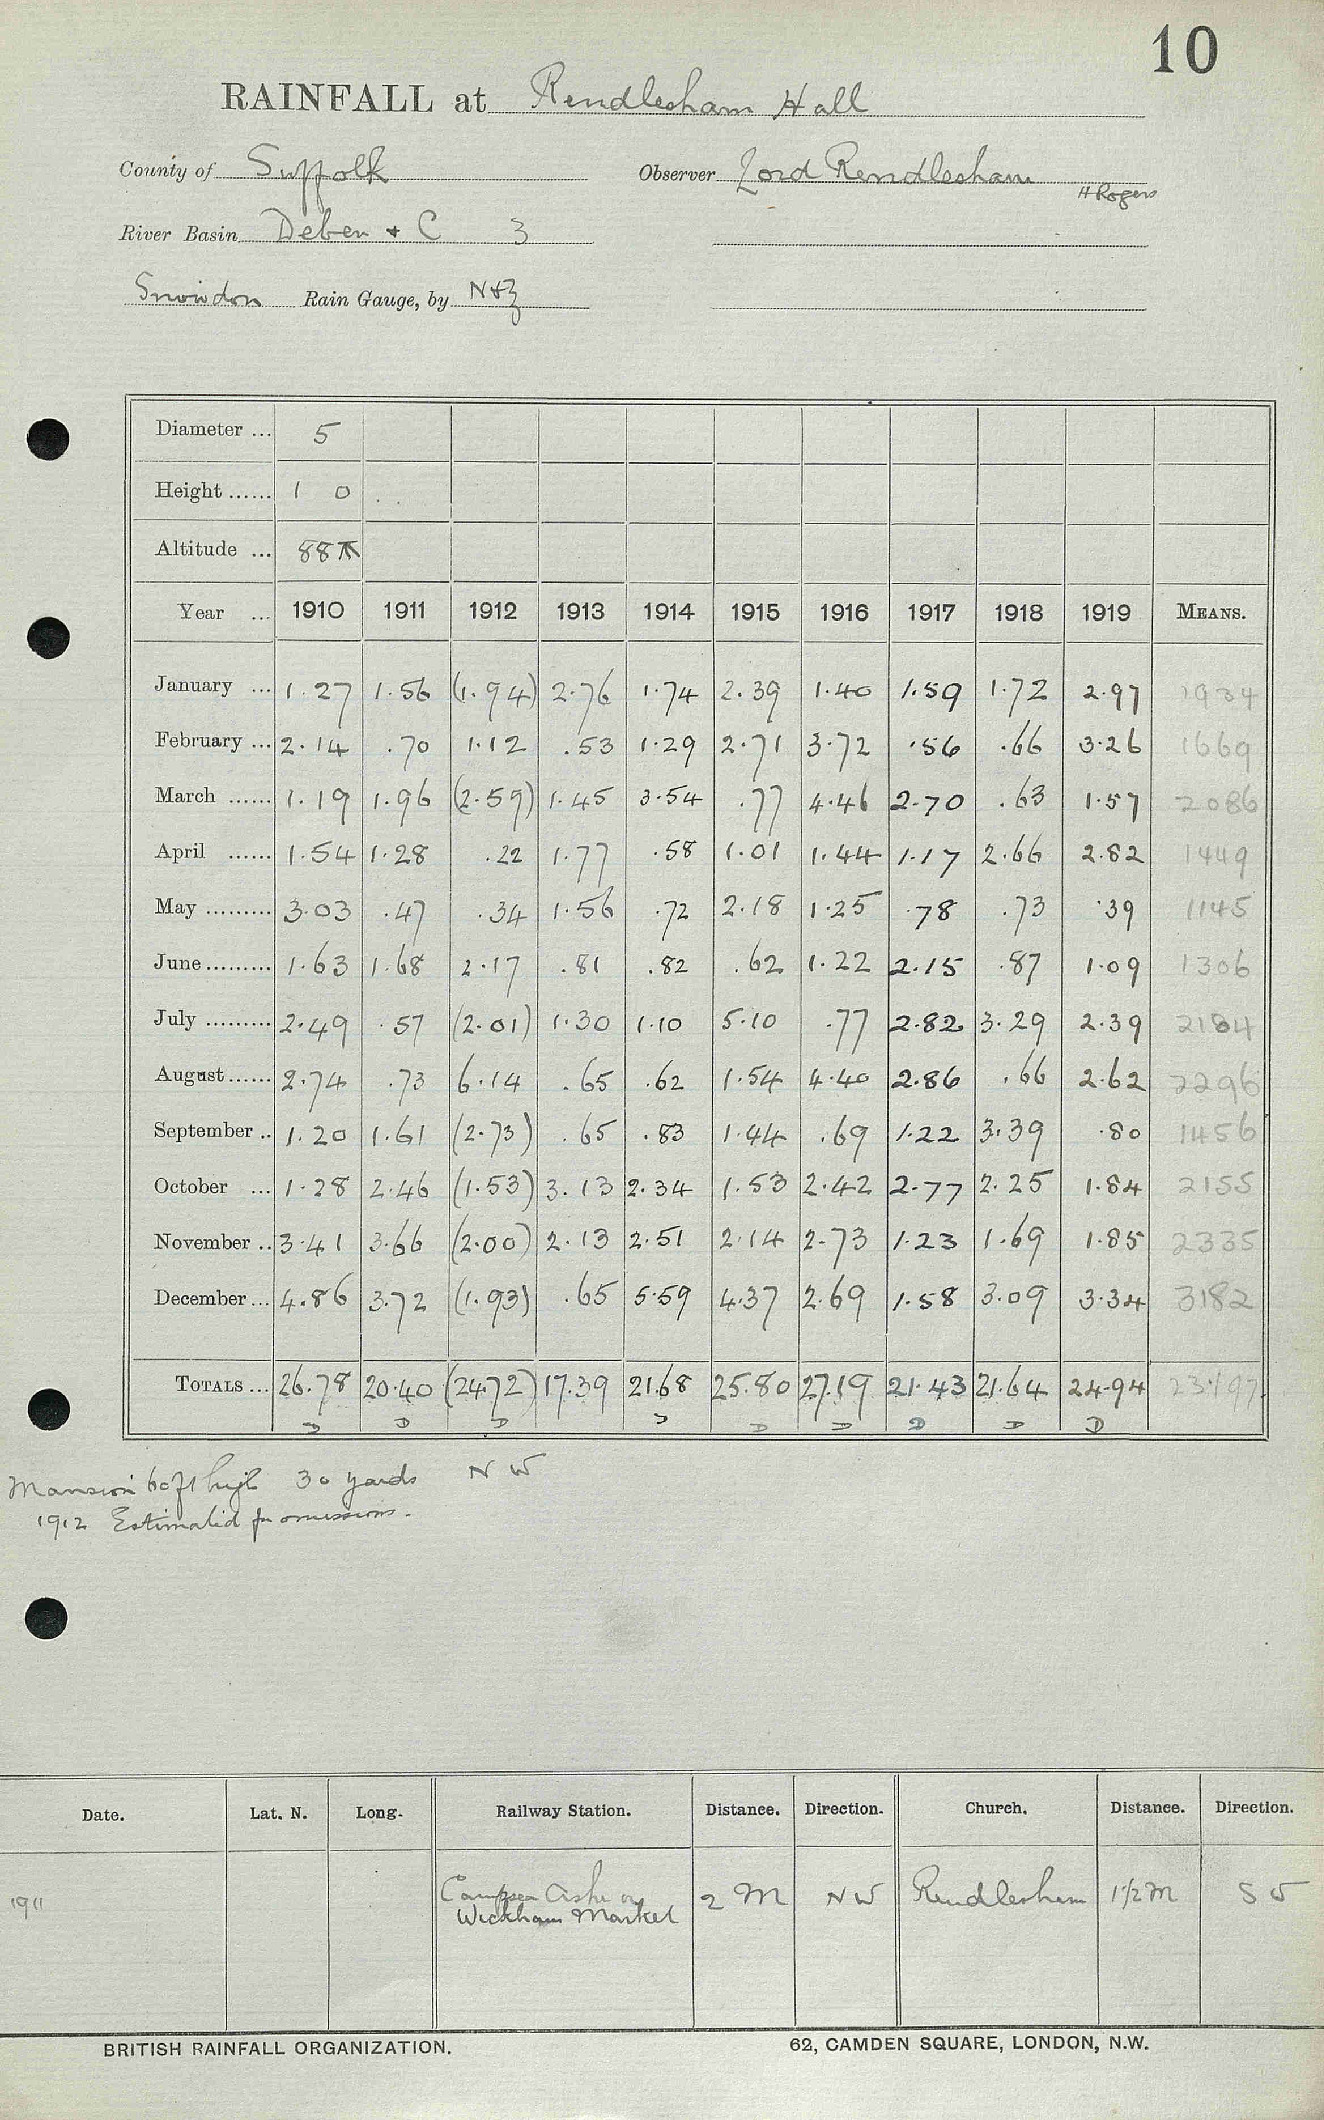 10
RAINFALL at Rendlesham Hall
County of Suffolk Observer Lord Rendlesham
H Rogers
River Basin Deben + C 3
Snowdon Rain Gauge, by N+Z
Diameter ... 5
Height ...... 1 0
Altitude ... 88
Year ... 1910 1911 1912 1913 1914 1915 1916 1917 1918 1919 MEANS.
January ... 1.27 1.56 (1.94) 2.76 1.74 2.39 1.40 1.59 1.72 2.97 1934
February ... 2.14 .70 1.12 .53 1.29 2.71 3.72 .56 .66 3.26 1669
March ...... 1.19 1.96 (2.59) 1.45 3.54 .77 4.46 2.70 .63 1.57 2086
April ...... 1.54 1.28 .22 1.77 .58 1.01 1.44 1.17 2.66 2.82 1449
May ......... 3.03 .47 .34 1.56 .72 2.18 1.25 .78 .73 .39 1145
June ......... 1.63 1.68 2.17 .81 .82 .62 1.22 2.15 .87 1.09 1306
July ......... 2.49 .57 (2.01) 1.30 1.10 5.10 .77 2.82 3.29 2.39 2184
August ...... 2.74 .73 6.14 .65 .62 1.54 4.40 2.86 .66 2.62 2296
September .. 1.20 1.61 (2.73) .65 .83 1.44 .69 1.22 3.39 .80 1456
October ... 1.28 2.46 (1.53) 3.13 2.34 1.53 2.42 2.77 2.25 1.84 2155
November .. 3.41 3.66 (2.00) 2.13 2.51 2.14 2.73 1.23 1.69 1.85 2335
December ... 4.86 3.72 (1.93) .65 5.59 4.37 2.69 1.58 3.09 3.34 3182
TOTALS ... 26.78 20.40 (24.72) 17.39 21.68 25.80 27.19 21.43 21.64 24.94 23.197
D D D D D D D D D
Mansion 60 ft high 30 yards N W
1912 Estimated for omissions.
Date. Lat. N. Long. Railway Station. Distance. Direction. Church. Distance. Direction.
1911 Campsea Ashe or 2 M NW Rendlesham 1 1/2 M S W
Wickham Market
BRITISH RAINFALL ORGANIZATION. 62, CAMDEN SQUARE, LONDON, N.W.